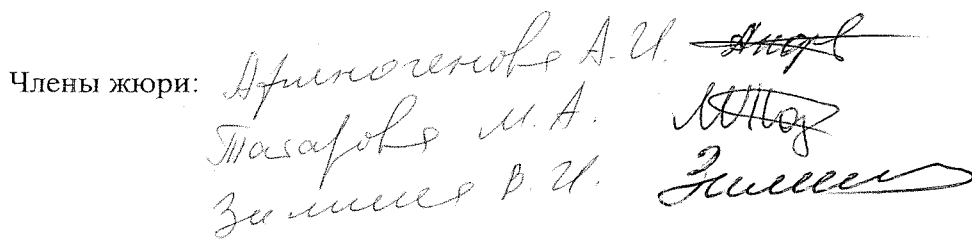 Члены жюри: Афиногенова А.И.
Татарова М.А.
Зимина В.И.